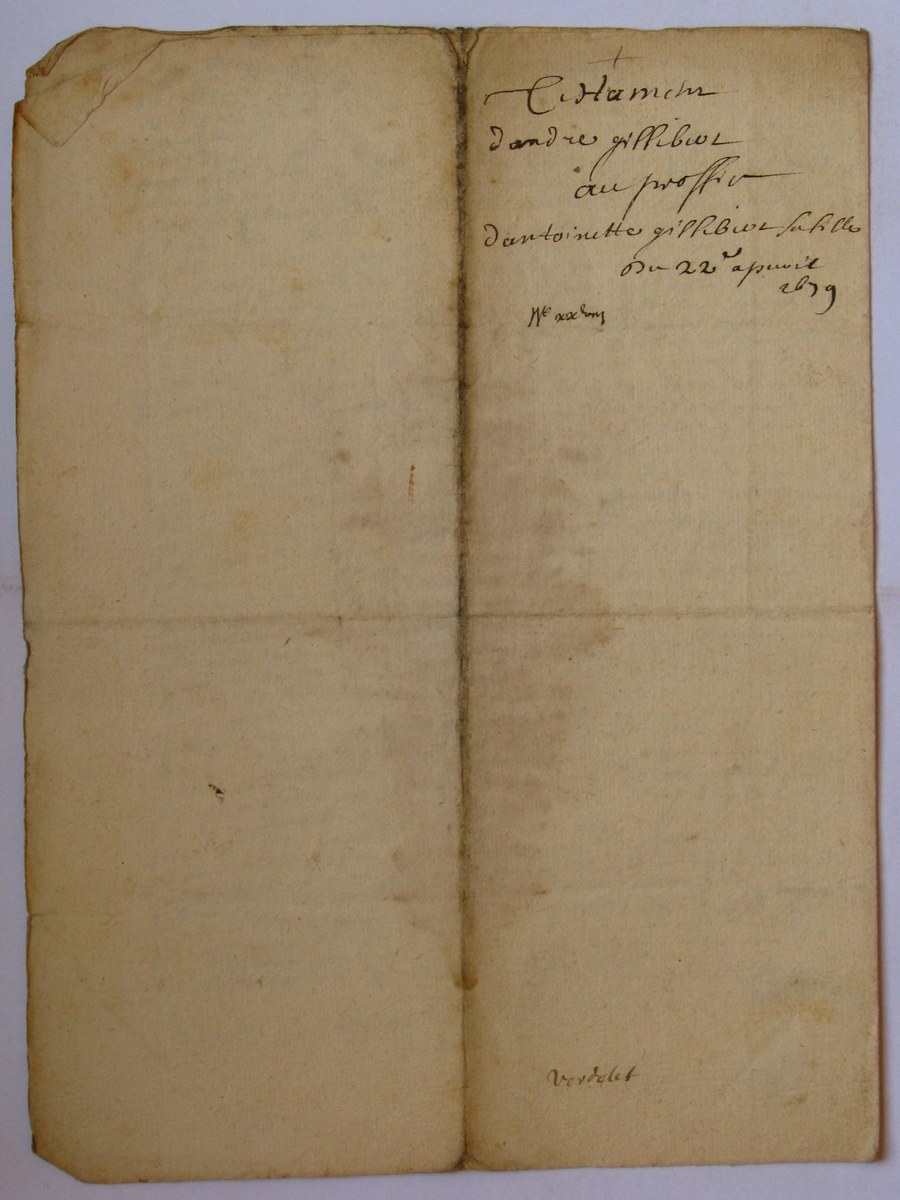 Testament
d'andre gillibert
au proffit
d'antoinette gillibert sa fille
du 22e apvril
1679
verdelet